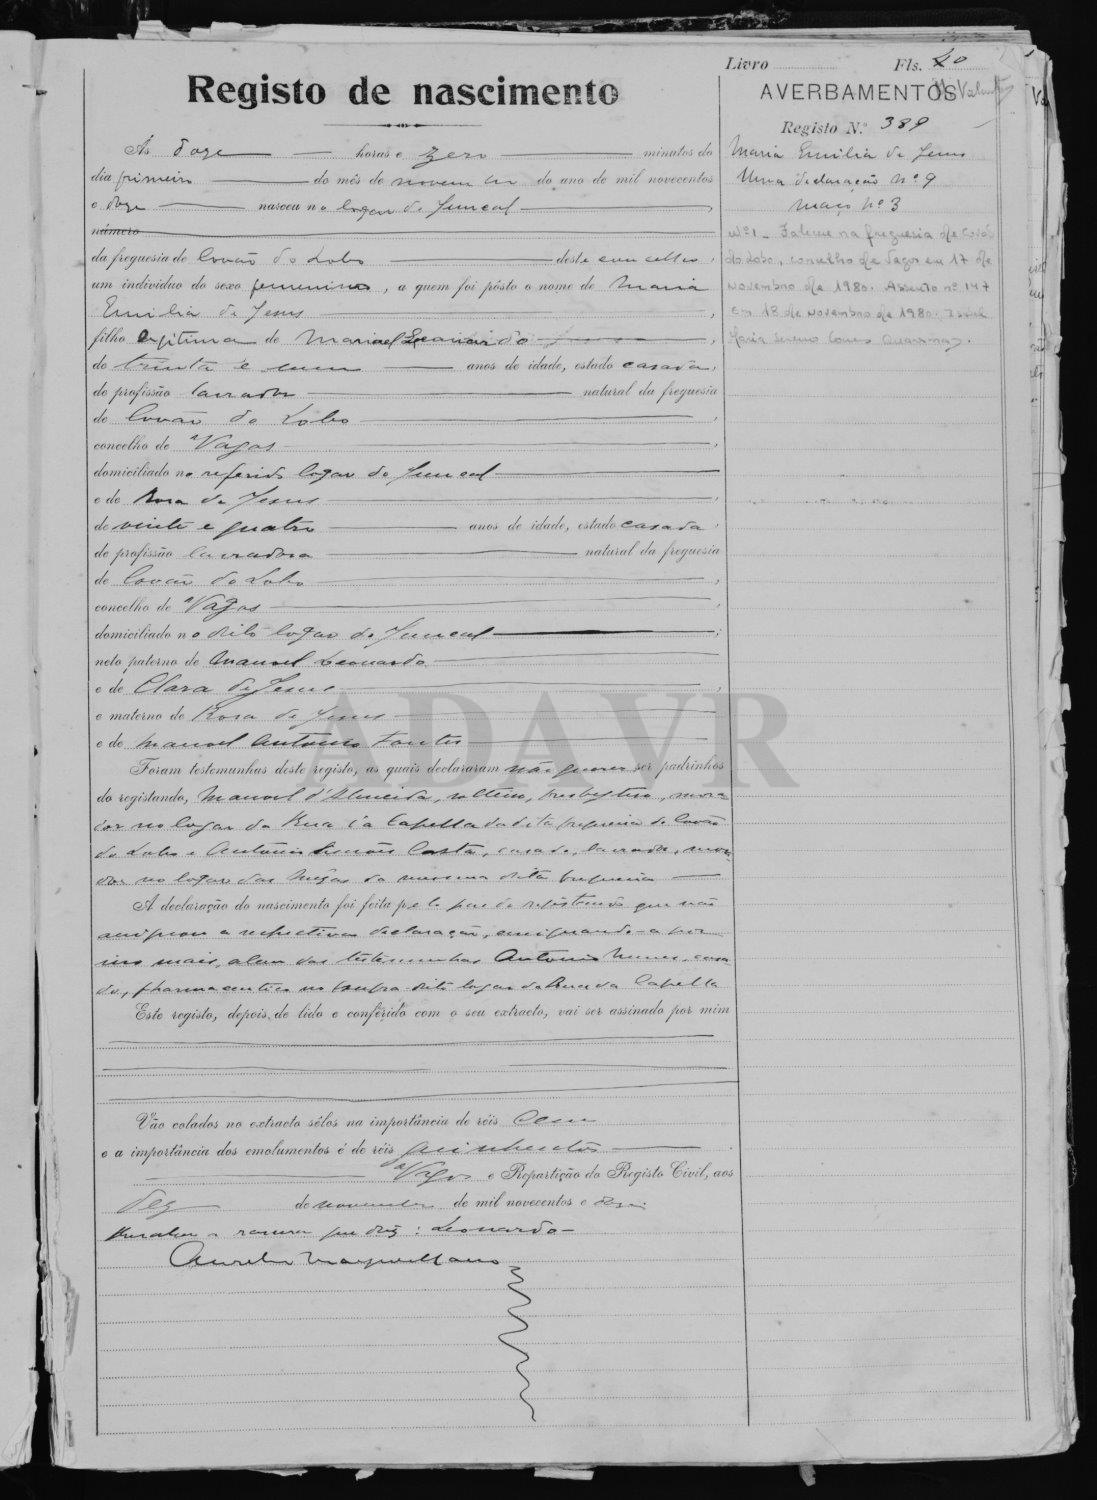 Livro Fls. 40
Registo de nascimento
AVERBAMENTOS
Registo N.º 389
Ás doze horas e zero minutos do
dia primeiro do mês de novembro do ano de mil novecentos
e doze nasceu no logar do Juncal,
número
da freguesia de Covão do Lobo deste concelho,
um indivíduo do sexo femenino, a quem foi pôsto o nome de Maria
Emilia de Jesus,
filho legitima de Manoel Leonardo,
de trinta e um anos de idade, estado casado,
de profissão lavrador natural da freguesia
de Covão do Lobo,
concelho de Vagos,
domiciliado no referido logar do Juncal
e de Rosa de Jesus,
de vinte e quatro anos de idade, estado casada,
de profissão lavradora natural da freguesia
de Covão do Lobo,
concelho de Vagos,
domiciliado no dito logar do Juncal;
neto paterno de Manoel Leonardo
e de Clara de Jesus,
e materno de Rosa de Jesus
e de Manoel Antonio Fontes
Foram testemunhas deste registo, as quais declararam não querer ser padrinhos
do registando, Manoel d'Almeida, solteiro, presbytero, mora-
dor no logar da Rua da Capella da dita freguesia de Covão
do Lobo e Antonio Simões Costa, casado, lavrador, mora-
dor no logar das Mesas da mesma dita freguesia
A declaração do nascimento foi feita pelo pae do registando que não
assignou a respectiva declaração, assignando-a por
isso mais, alem das testemunhas Antonio Nunes, casa-
do, pharmaceutico no supra dito logar da Rua da Capella
Este registo, depois de lido e conferido com o seu extracto, vai ser assinado por mim
Vão colados no extracto sêlos na importância de réis cem
e a importância dos emolumentos é de réis quinhentos
Vagos e Repartição do Registo Civil, aos
dez de novembro de mil novecentos e doze.
Resalvo a rasura que diz: Leonardo
Aurelio
Maria Emilia de Jesus
Uma declaração nº 9
Maço nº 3
Nº 1 - Faleceu na freguesia de Covão
do Lobo, concelho de Vagos em 17 de
novembro de 1980. Assento nº 147
em 18 de novembro de 1980.
Maria
ADAVR